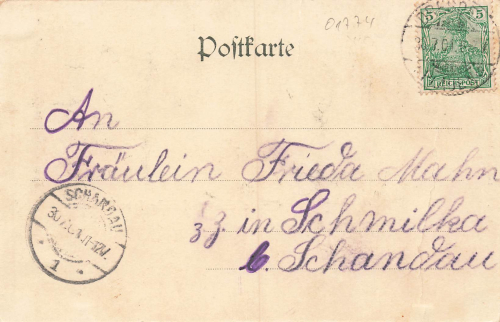 01774
5 5
Postkarte
An
Fräulein Frieda Mahn
zz. in Schmilka
b. Schandau
SCHANDAU
1